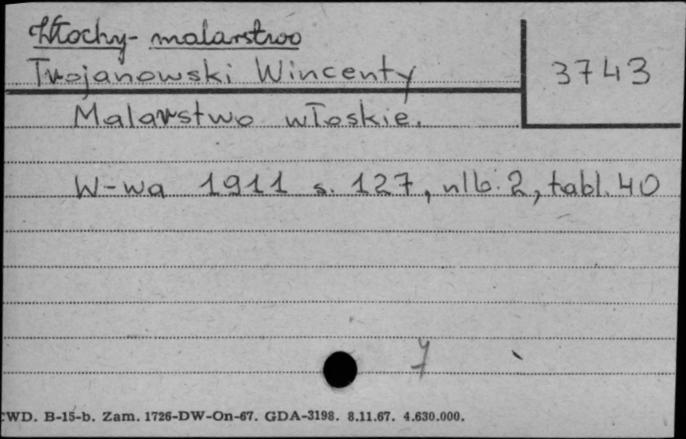 Włochy- malarstwo
Trojanowski Wincenty
3743
Malarstwo włoskie.
W-wa 1911 s. 127, nlb. 2, tabl. 40
7
CWD. B-15-b. Zam. 1726-DW-On-67. GDA-3198. 8.11.67. 4.630.000.